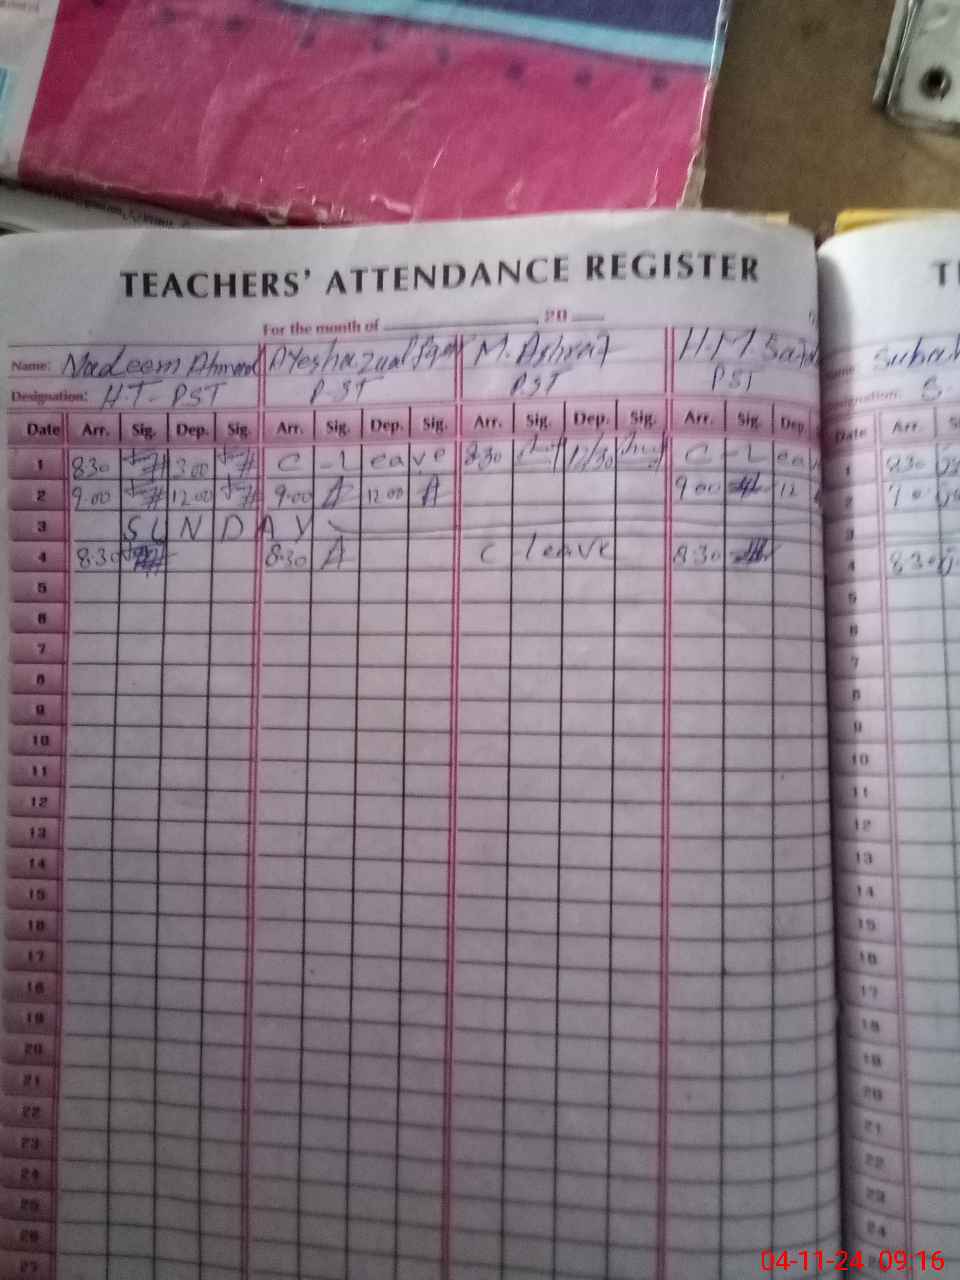 TEACHERS' ATTENDANCE REGISTER
For the month of 20
Name: Nadeem Ahmed M. Ashraf H.M.
Designation: H.T - PST PST PST PST
Date Arr. Sig. Dep. Sig. Arr. Sig. Dep. Sig. Arr. Sig. Dep. Sig. Arr. Sig. Dep.
1 8:30 3:00 C - Leave 8:30 12/30 C - Lea
2 9:00 12:00 9:00 A 12:00 A 9:00 12
3 SUNDAY
4 8:30 8:30 A C leave 8:30
5
6
7
8
9
10
11
12
13
14
15
16
17
18
19
20
21
22
23
24
25
26
27
Date Arr.
1 8:30
2
3
4 8:30
5
6
7
8
9
10
11
12
13
14
15
16
17
18
19
20
21
22
23
24
04-11-24 09:16